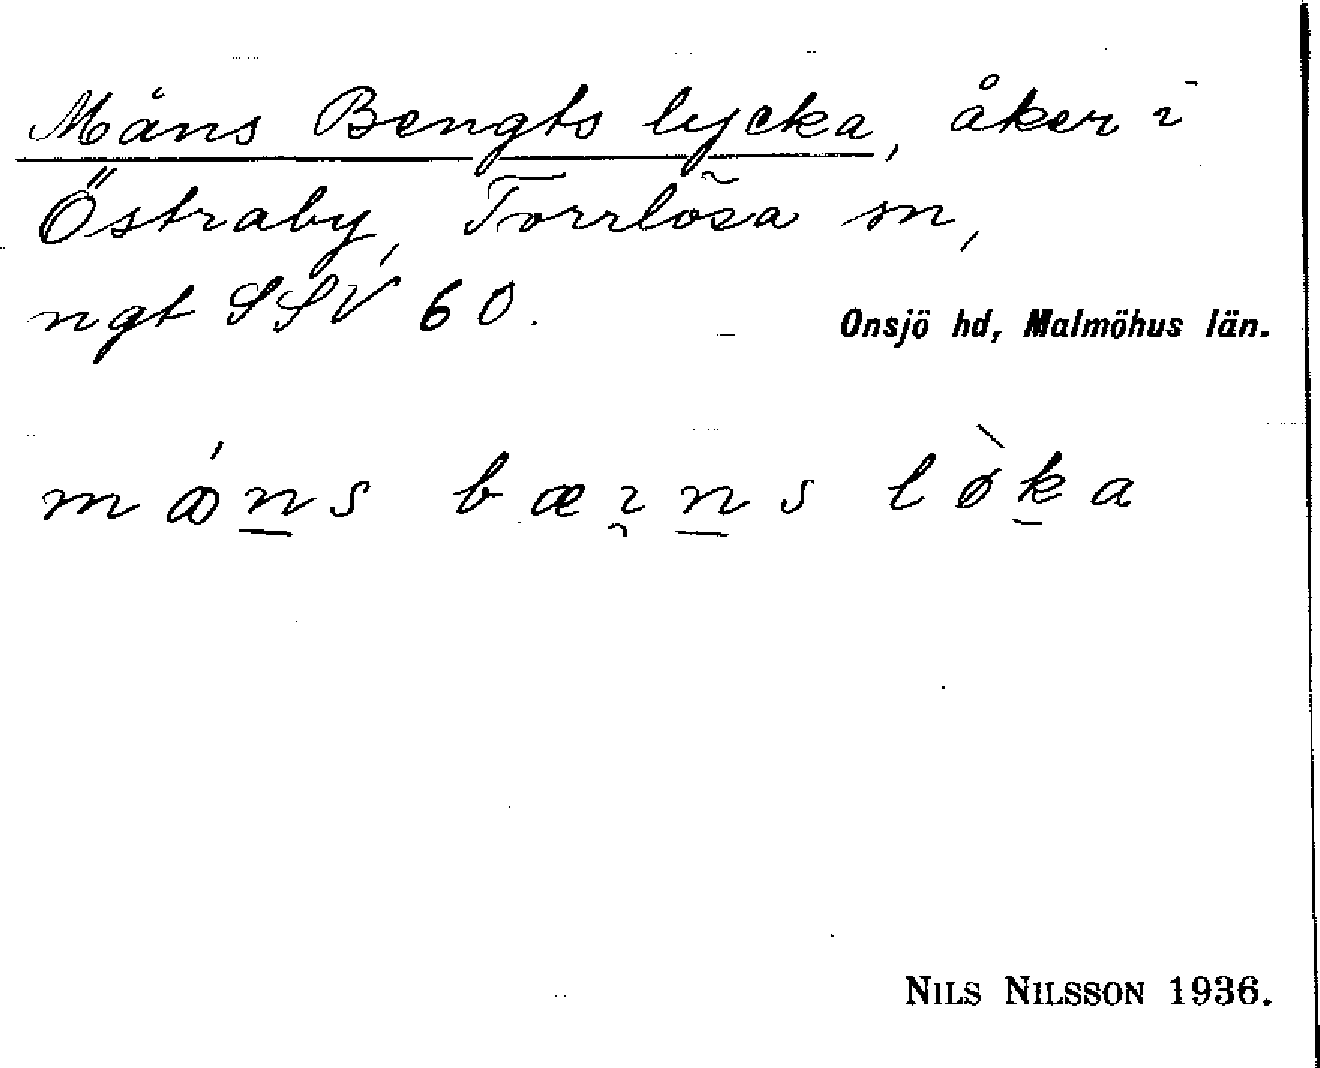 Måns Bengts lycka, åker i
Östraby, Torrlösa sn,
ngt SSV 60.
Onsjö hd, Malmöhus län.
måns bæıns lø̀ka
NILS NILSSON 1936.